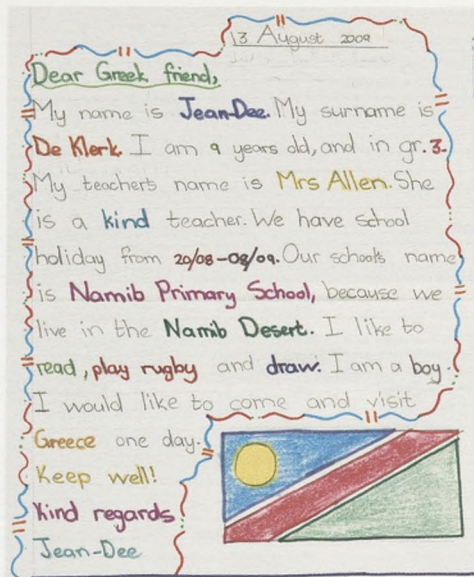 13 August 2009
Dear Greek friend,
My name is Jean-Dee. My surname is
De Klerk. I am 9 years old, and in gr. 3.
My teacher's name is Mrs Allen. She
is a kind teacher. We have school
holiday from 20/08-08/09. Our school's name
is Namib Primary School, because we
live in the Namib Desert. I like to
read, play rugby and draw. I am a boy.
I would like to come and visit
Greece one day.
Keep well!
Kind regards
Jean-Dee